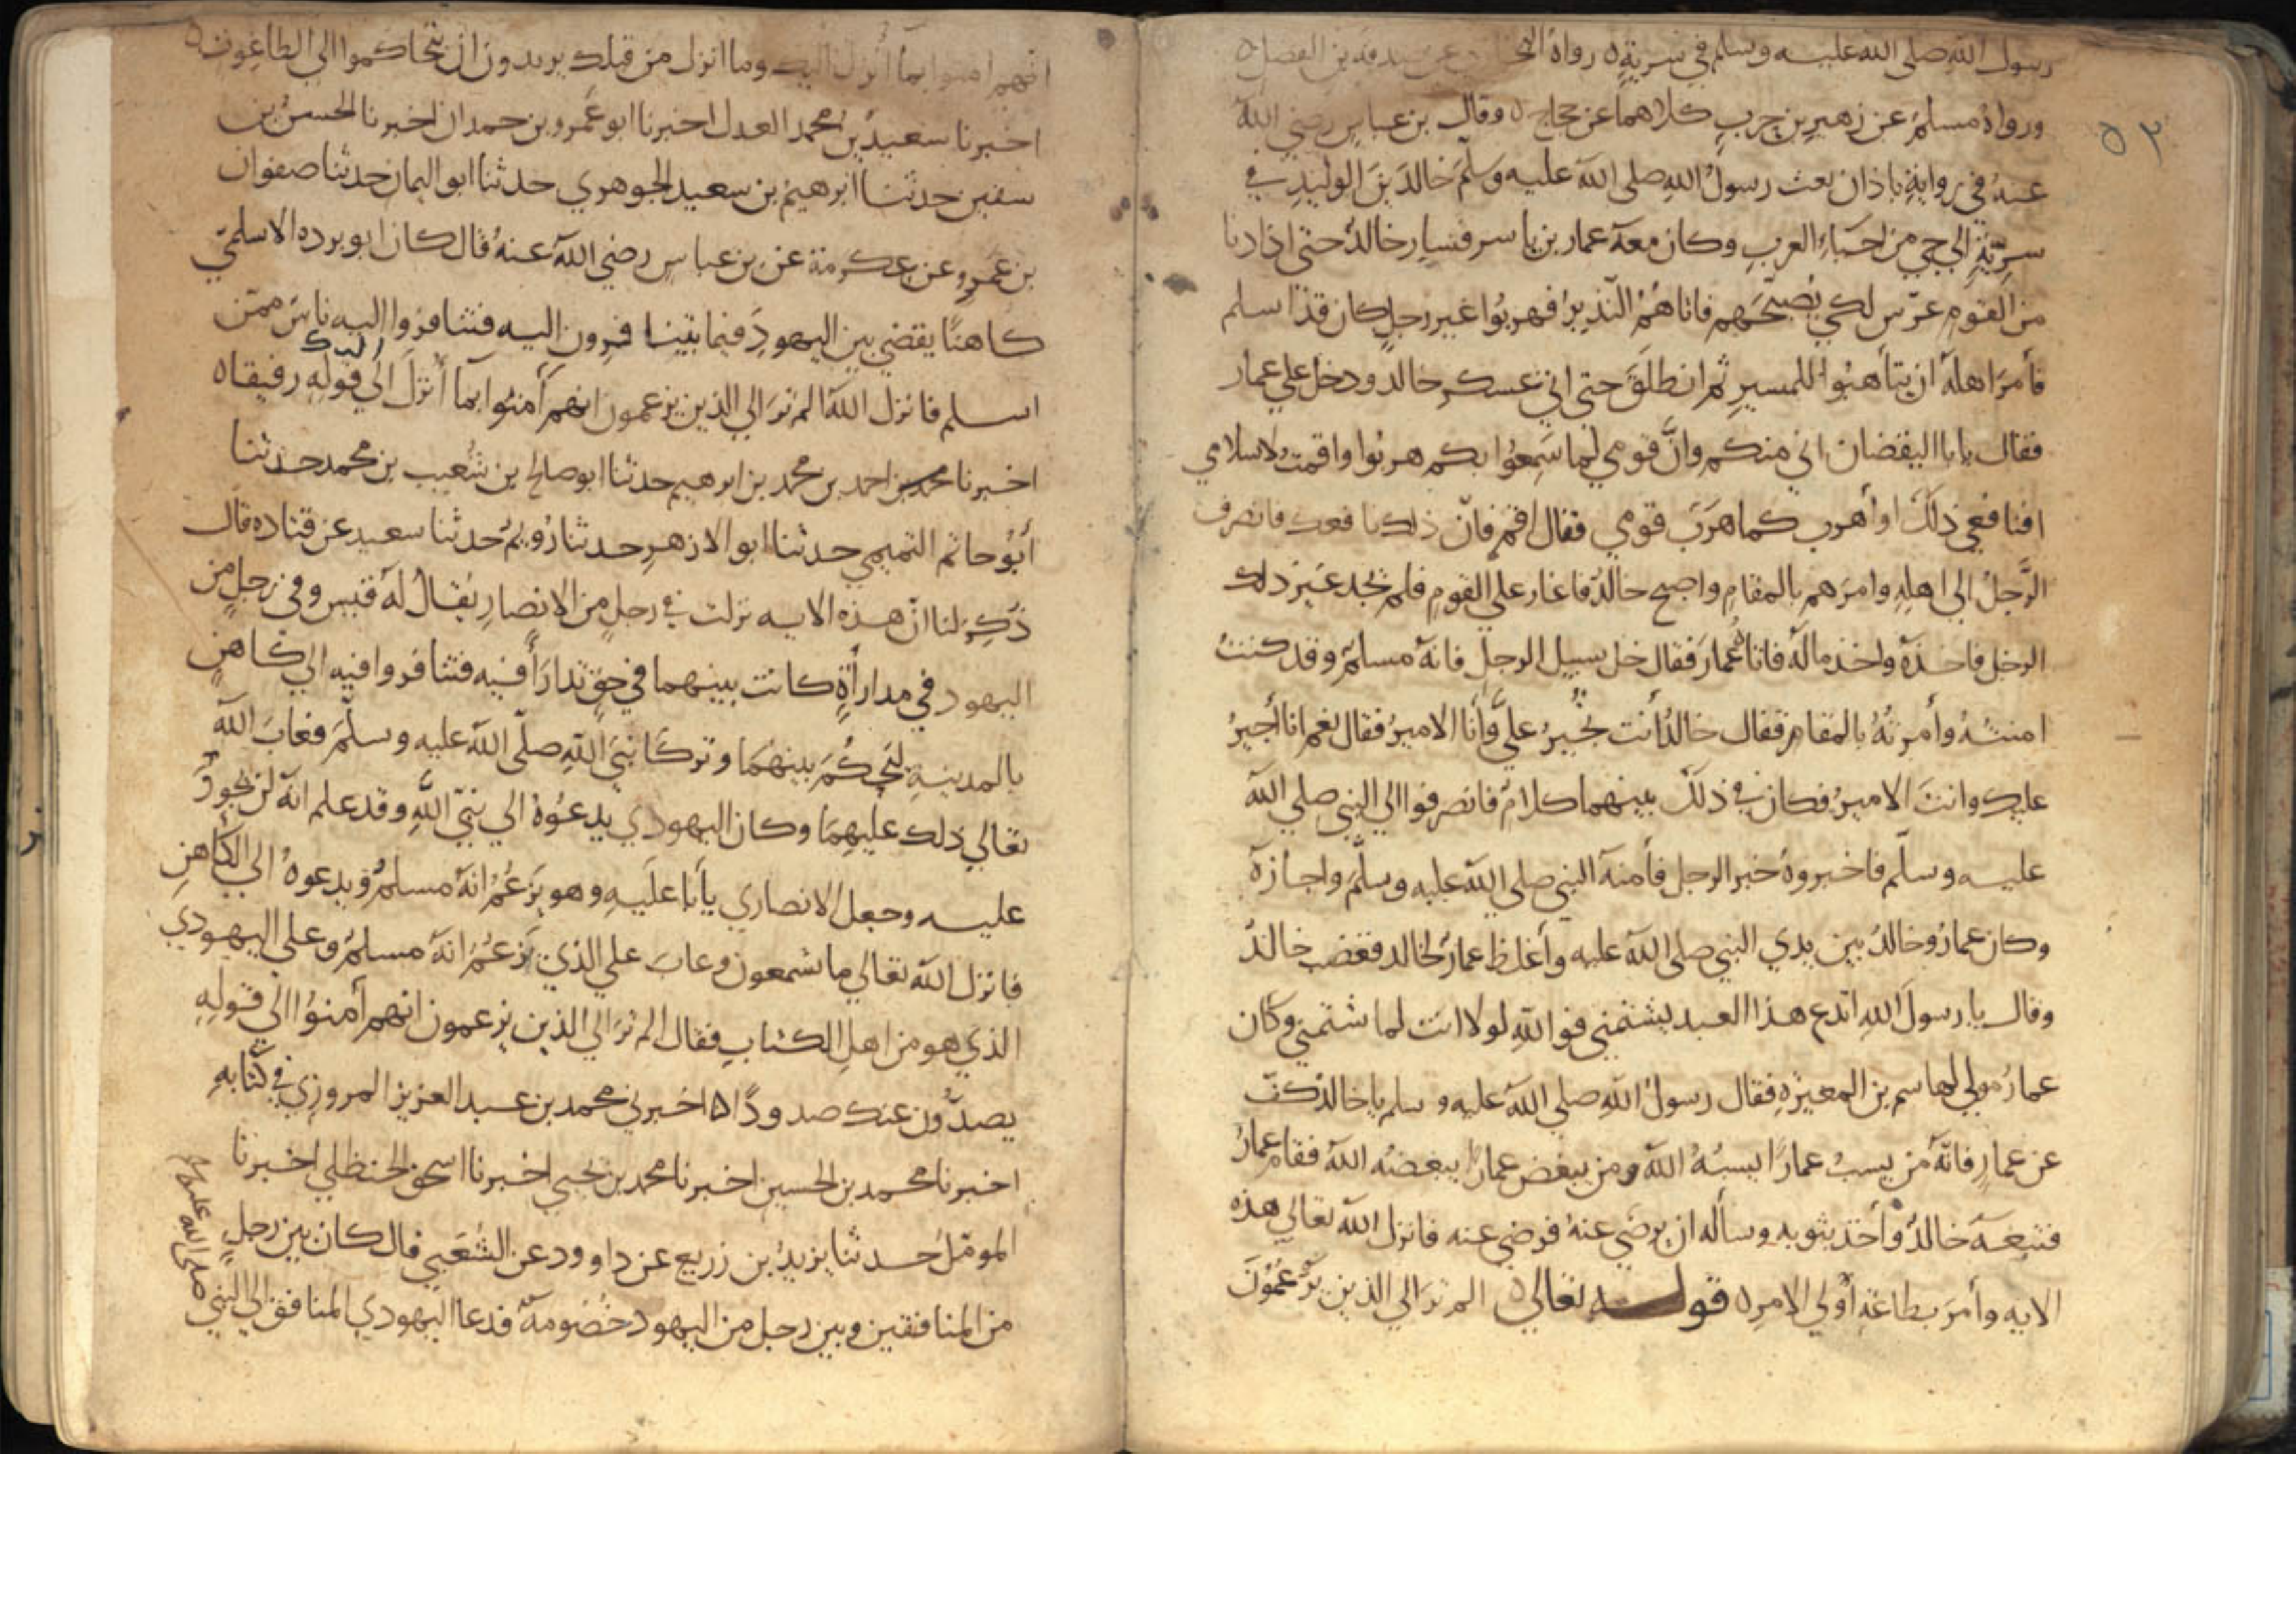 ٥٢
رسول الله صلى الله عليه وسلم في سرية ه رواه عن صدقة بن الفضل ه
ورواهُ مسلمٌ عن زهيرِ بن حربٍ كلاهما عن حجاج ه وقال بن عباسٍ رضي الله
عنهُ في روايةِ باذان بعث رسولُ اللهِ صلى الله عليه وسلَّم خالدَ بنَ الوليدِ في
سريّةٍ الي حي من احياءِ العربِ وكان معه عمار بن ياسر فسار خالدٌ حتى اذا دنا
من القومِ عرّس لكي يُصبّحَهم فاتاهُمُ النّذيرُ فهربُوا غير رجلٍ كان قد اسلم
فأمرَ اهلهُ ان يتأهبُوا للمسيرِ ثم انطلَقَ حتى اتي عسكرِ خالدٍ ودخل علي عمار
فقال يابا اليقضان اني منكم وانَّ قومي لما سَمِعُوا بكم هربُوا واقمتُ لاسلامي
افنافعي ذلكَ اوأهربُ كما هرَبَ قومي فقال اقم فانّ ذلك نافعك فانصرف
الرَّجلُ الي اهلِهِ وامرَهم بالمقامِ واصبح خالدٌ فاغار علي القومِ فلم يجد غيرَ ذلك
الرجل فاخذهُ واخذ مالهُ فاتاهُ عمارٌ فقال خل سبيل الرجل فانه مسلمٌ وقد كنتُ
امنتُهُ وأمرتُهُ بالمقامِ فقال خالدٌ أنت تُجيرُ عليَّ وأنا الاميرُ فقال نعم انا أجيرُ
عليك وانتَ الاميرُ فكان في ذلكَ بينهما كلامٌ فانصرفوا الي النبي صلي الله
عليه وسلّم فاخبروهُ خبر الرجل فأمنه النبي صلي الله عليه وسلَّم واجازه
وكان عمارٌ وخالدٌ بين يدي النبي صلى الله عليه وأغلظ عمارٌ لخالد فغضب خالدٌ
وقال يا رسولَ اللهِ اتدع هذا العبد يشتمني فو اللهِ لولا انت لما شتمني وكان
عمارٌ مولي لهاسم بن المغيرةِ فقال رسولُ اللهِ صلي الله عليه وسلم يا خالدُ كفّ
عن عمارٍ فانّه مَن يسبُ عمارًا يسبُهُ الله ومن يبغض عمارًا يبغضُه الله فقام عمارٌ
فتبعَه خالدٌ وأخذ بثوبه وسأله ان يرضي عنهُ فرضي عنه فانزل الله تعالي هذه
الايه وأمرَ بطاعةِ أولي الامرِ ه قوله تعالي ه الم ترَ الي الذين يَزعُمُونَ
انهم امنوا بما أُنزل اليك وما انزل من قبلك يريدون ان يتحاكموا الي الطاغوت ه
اخبرنا سعيدُ بن محمد العدل اخبرنا ابو عَمرو بن حمدان اخبرنا الحسنُ بن
سفين حدثنا ابرهيم بن سعيد الجوهري حدثنا ابو اليمان حدثنا صفوان
بن عَمرٍو عن عكرمة عن بن عباسٍ رضي الله عنهُ قال كان ابو برده الاسلميّ
كاهنًا يقضي بين اليهودِ فيما يتنافرون اليه فتنافروا اليه ناسٌ ممّن
اسلم فانزل الله الم ترَ الي الذين يزعمون انهم أمنُوا بما أُنزلَ اليك الي قولهِ رفيقا ه
اخبرنا محمد بن احمد بن محمد بن ابرهيم حدثنا ابو صالح بن شُعيب بن محمد حدثنا
أبُو حاتم التميمي حدثنا ابو الازهرِ حدثنا رُويمٌ حدثنا سعيد عن قتاده قال
ذُكِرَ لنا انّ هذه الايه نزلت في رجلٍ من الانصارِ يُقالُ لهُ قيس وفي رجلٍ من
اليهود في مدارأةٍ كانت بينهما في حقٍ تدارَأَ فيه فتنافروا فيه الي كاهنٍ
بالمدينةِ ليحكُمَ بينهُمَا وتركَا نبيَ اللهِ صلّى الله عليه وسلَّمَ فعابَ الله
تعالي ذلك عليهِمَا وكان اليهودي يدعُوهُ الي نبيّ اللهِ وقد علم انه لن يجورَ
عليه وجعل الانصاري يأبا علَيهِ وهو يَزعُمُ انهُ مسلمٌ ويدعوهُ الي الكاهنِ
فانزل الله تعالي ما تسمعون وعابَ علي الذي يَزعُمُ انهُ مسلمٌ وعلي اليهودي
الذي هو من اهلِ الكتابِ فقال الم ترَ الي الذين يزعمون انهم أمنوُا الي قوله
يصدُّون عنك صدودًا ه اخبرني محمد بن عبد العزيز المروزي في كتابهِ
اخبرنا محمد بن الحسين اخبرنا محمد بن يحيي اخبرنا اسحق الحنظلي اخبرنا
المومّلُ حدثنا يزيدُ بن زريع عن داوود عن الشُعَبي قال كان بين رجلٍ
من المنافقين وبين رجل من اليهود خُصُومةٌ فدعا اليهودي المنافق الي النبي
صلى الله عليه وسلم